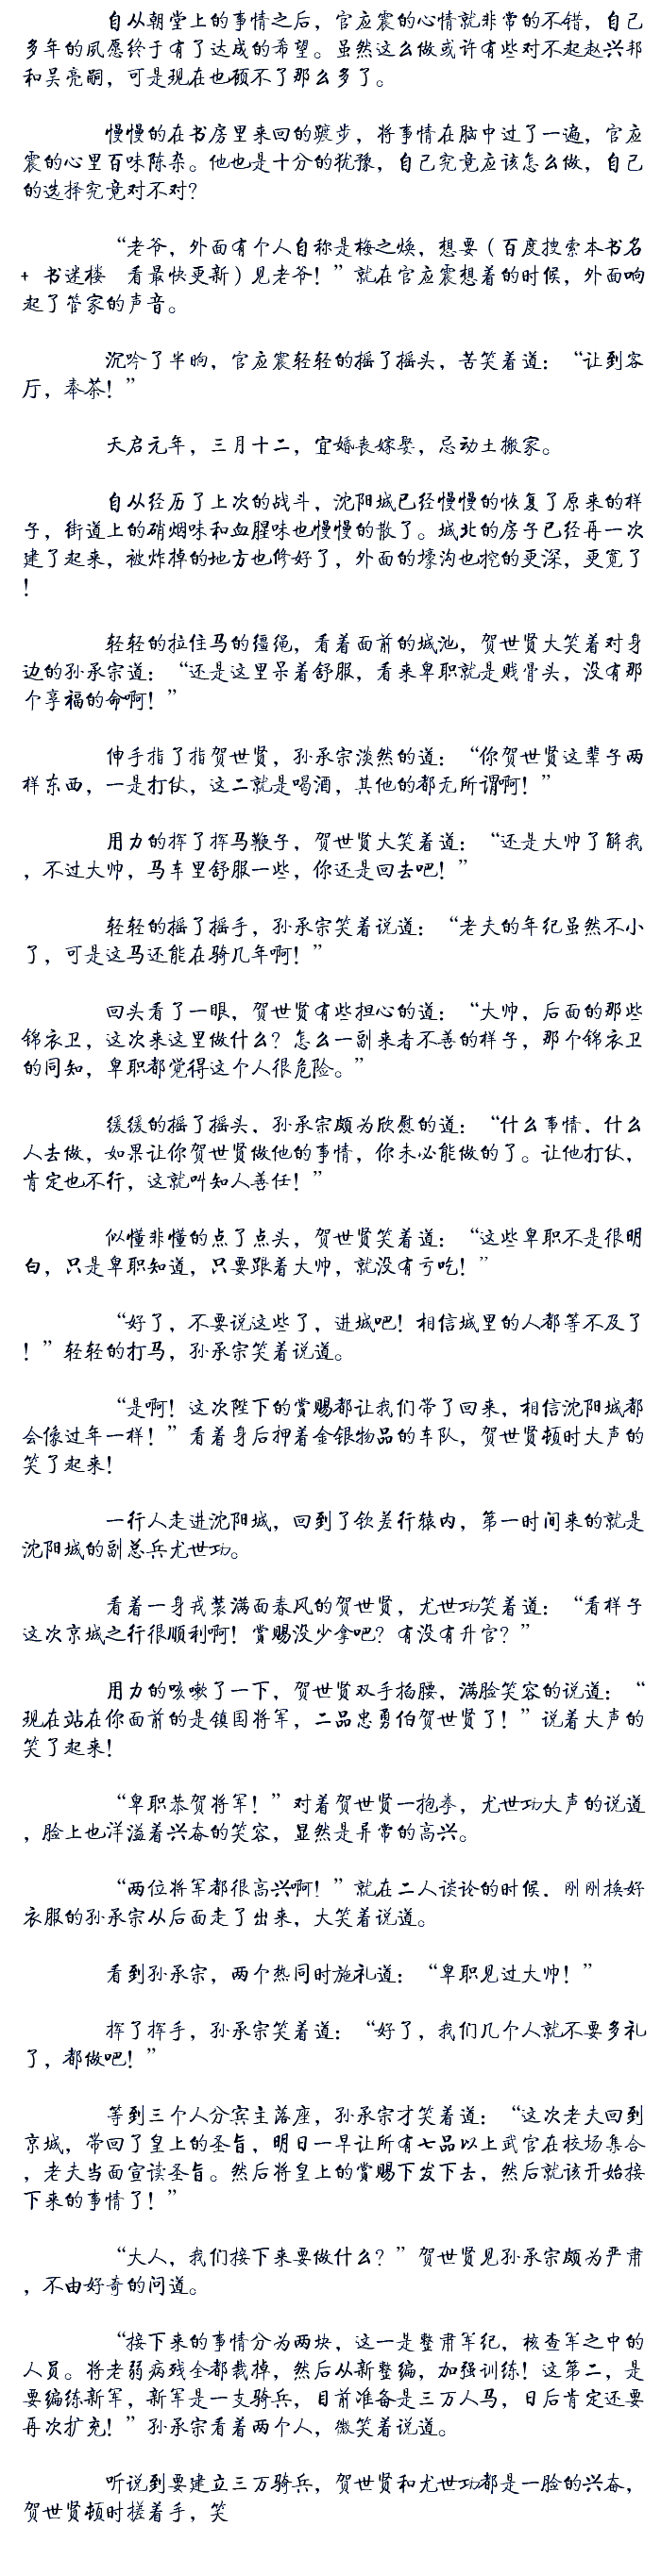 自从朝堂上的事情之后，官应震的心情就非常的不错，自己
多年的夙愿终于有了达成的希望。虽然这么做或许有些对不起赵兴邦
和吴亮嗣，可是现在也顾不了那么多了。
慢慢的在书房里来回的踱步，将事情在脑中过了一遍，官应
震的心里百味陈杂。他也是十分的犹豫，自己究竟应该怎么做，自己
的选择究竟对不对？
“老爷，外面有个人自称是梅之焕，想要（百度搜索本书名
+ 书迷楼 看最快更新）见老爷！”就在官应震想着的时候，外面响
起了管家的声音。
沉吟了半晌，官应震轻轻的摇了摇头，苦笑着道：“让到客
厅，奉茶！”
天启元年，三月十二，宜婚丧嫁娶，忌动土搬家。
自从经历了上次的战斗，沈阳城已经慢慢的恢复了原来的样
子，街道上的硝烟味和血腥味也慢慢的散了。城北的房子已经再一次
建了起来，被炸掉的地方也修好了，外面的壕沟也挖的更深，更宽了
！
轻轻的拉住马的缰绳，看着面前的城池，贺世贤大笑着对身
边的孙承宗道：“还是这里呆着舒服，看来卑职就是贱骨头，没有那
个享福的命啊！”
伸手指了指贺世贤，孙承宗淡然的道：“你贺世贤这辈子两
样东西，一是打仗，这二就是喝酒，其他的都无所谓啊！”
用力的挥了挥马鞭子，贺世贤大笑着道：“还是大帅了解我
，不过大帅，马车里舒服一些，你还是回去吧！”
轻轻的摇了摇手，孙承宗笑着说道：“老夫的年纪虽然不小
了，可是这马还能在骑几年啊！”
回头看了一眼，贺世贤有些担心的道：“大帅，后面的那些
锦衣卫，这次来这里做什么？怎么一副来者不善的样子，那个锦衣卫
的同知，卑职都觉得这个人很危险。”
缓缓的摇了摇头，孙承宗颇为欣慰的道：“什么事情，什么
人去做，如果让你贺世贤做他的事情，你未必能做的了。让他打仗，
肯定也不行，这就叫知人善任！”
似懂非懂的点了点头，贺世贤笑着道：“这些卑职不是很明
白，只是卑职知道，只要跟着大帅，就没有亏吃！”
“好了，不要说这些了，进城吧！相信城里的人都等不及了
！”轻轻的打马，孙承宗笑着说道。
“是啊！这次陛下的赏赐都让我们带了回来，相信沈阳城都
会像过年一样！”看着身后押着金银物品的车队，贺世贤顿时大声的
笑了起来！
一行人走进沈阳城，回到了钦差行辕内，第一时间来的就是
沈阳城的副总兵尤世功。
看着一身戎装满面春风的贺世贤，尤世功笑着道：“看样子
这次京城之行很顺利啊！赏赐没少拿吧？有没有升官？”
用力的咳嗽了一下，贺世贤双手掐腰，满脸笑容的说道：“
现在站在你面前的是镇国将军，二品忠勇伯贺世贤了！”说着大声的
笑了起来！
“卑职恭贺将军！”对着贺世贤一抱拳，尤世功大声的说道
，脸上也洋溢着兴奋的笑容，显然是异常的高兴。
“两位将军都很高兴啊！”就在二人谈论的时候，刚刚换好
衣服的孙承宗从后面走了出来，大笑着说道。
看到孙承宗，两个热同时施礼道：“卑职见过大帅！”
挥了挥手，孙承宗笑着道：“好了，我们几个人就不要多礼
了，都做吧！”
等到三个人分宾主落座，孙承宗才笑着道：“这次老夫回到
京城，带回了皇上的圣旨，明日一早让所有七品以上武官在校场集合
，老夫当面宣读圣旨。然后将皇上的赏赐下发下去，然后就该开始接
下来的事情了！”
“大人，我们接下来要做什么？”贺世贤见孙承宗颇为严肃
，不由好奇的问道。
“接下来的事情分为两块，这一是整肃军纪，核查军之中的
人员。将老弱病残全都裁掉，然后从新整编，加强训练！这第二，是
要编练新军，新军是一支骑兵，目前准备是三万人马，日后肯定还要
再次扩充！”孙承宗看着两个人，微笑着说道。
听说到要建立三万骑兵，贺世贤和尤世功都是一脸的兴奋，
贺世贤顿时搓着手，笑